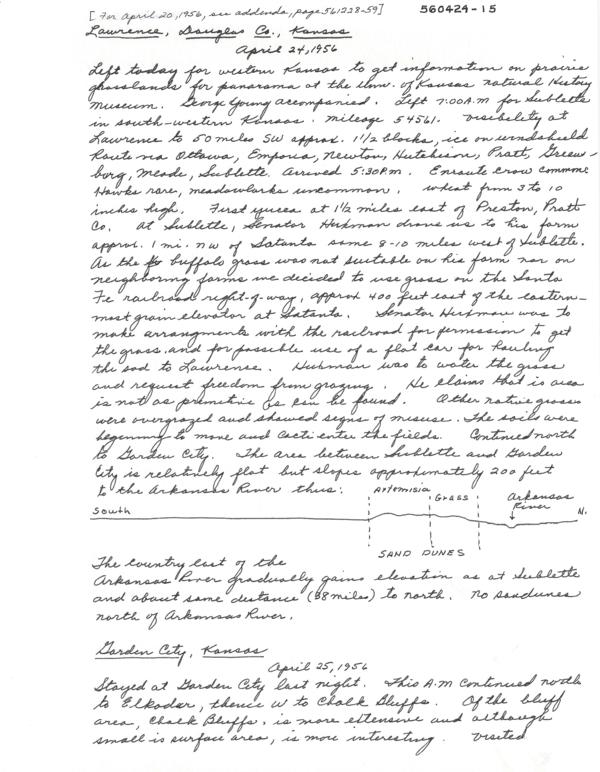 [For April 20, 1956, see addenda, page 561228-59]
560424-15
Lawrence, Douglas Co., Kansas
April 24, 1956
Left today for western Kansas to get information on prairie
grasslands for panorama at the Univ. of Kansas Natural History
Museum. George Young accompanied. Left 7:00 A.M for Sublette
in south-western Kansas. mileage 54561. Visibility at
Lawrence to 50 miles SW approx. 1 1/2 blocks, ice on windshield
Route via Ottawa, Emporia, Newton, Hutchinson, Pratt, Greens-
burg, Meade, Sublette. Arrived 5:30 P.m. Enroute crow common
Hawks rare, meadowlarks uncommon. wheat from 3 to 10
inches high. First yucca at 1 1/2 miles east of Preston, Pratt
Co. At Sublette, Senator Herkman drove us to his farm
approx. 1 mi. NW of Satanta some 8-10 miles west of Sublette.
As the buffalo grass was not suitable on his farm nor on
neighboring farms we decided to use grass on the Santa
Fe railroad right-of-way, approx 400 feet east of the eastern-
most grain elevator at Satanta. Senator Herkman was to
make arrangments with the railroad for permission to get
the grass, and for possible use of a flat car for hauling
the sod to Lawrence. Herkman was to water the grass
and request freedom from grazing. He claims that is area
is not as primitive as can be found. Other native grasses
were overgrazed and showed signs of misuse. The soils were
beginning to move and cacti enter the fields. Contined north
to Garden City. The area between Sublette and Garden
City is relatively flat but slopes approximately 200 feet
to the Arkansas River thus:
Artemisia
Grass
Arkansas
River
South
N.
SAND DUNES
The country east of the
Arkansas River gradually gains elevation as at Sublette
and about same distance (38 miles) to north. No sandunes
north of Arkansas River.
Garden City, Kansas
April 25, 1956
Stayed at Garden City last night. This A.M continued north
to Elkader, thence W to Chalk Bluffs. Of the bluff
area, Chalk Bluffs, is more extensive and although
small is surface area, is more interesting. Visited